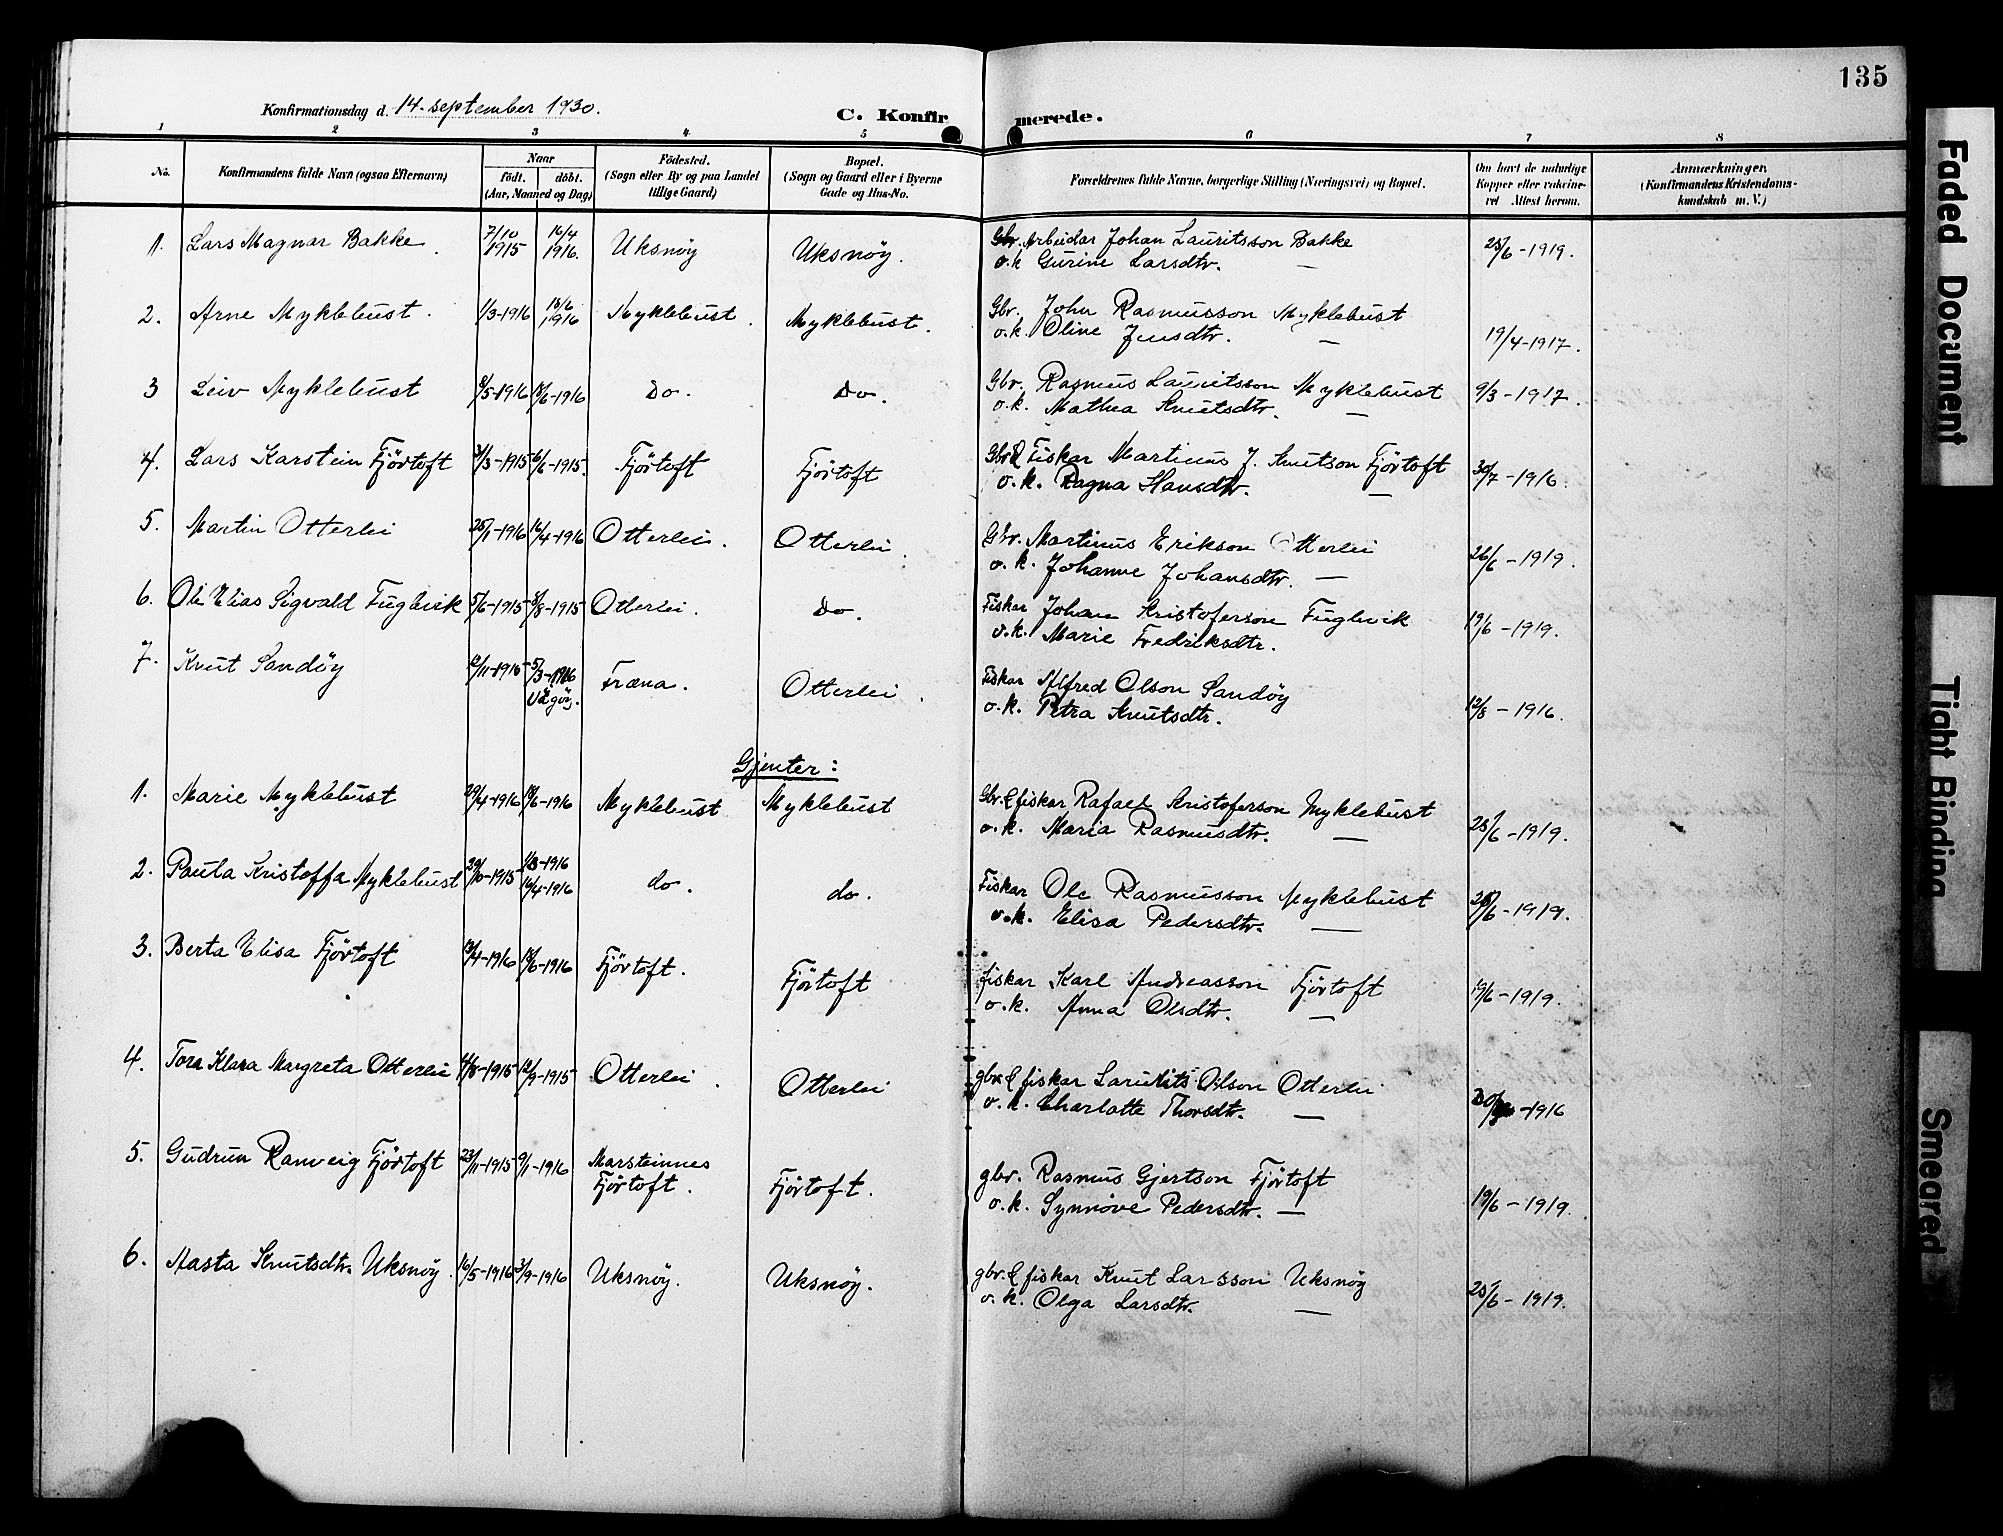 135
Konfirmationsdag d. 14. september 1930.
C. Konfirmerede.
1 2 3 4 5 6 7 8
No.
Konfirmandens fulde Navn (ogsaa Efternavn)
Naar
født. døbt.
(Aar, Maaned og Dag)
Fødested.
(Sogn eller By og paa Landet
tillige Gaard)
Bopæl.
(Sogn og Gaard eller i Byerne
Gade og Hus-No.
Forældrenes fulde Navne, borgerlige Stilling (Næringsvei) og Bopæl.
Om havt de naturlige
Kopper eller vakcine-
ret Attest herom.
Anmærkninger.
(Konfirmandens Kristendoms-
kundskab m. V.)
1. Lars Magnar Bakke. 7/10 1915 16/4 1916. Uksnøy Uksnøy. Arbeidar Johan Lauritsson Bakke 25/6-1919.
o.k Gurine Larsdtr. —
2. Arne Myklebust. 1/3-1916 18/6 1916 Myklebust. Myklebust. Gbr. John Rasmusson Myklebust
o.k. Oline Jensdtr. — 19/4-1917.
3 Leiv Myklebust 8/5-1916 18/6-1916 Do. Do. Gbr. Rasmus Lauritsson Myklebust 9/3-1917.
o.k. Mathea Knutsdtr. —
4. Lars Karstein Fjørtoft /3-1915 6/6-1915. Fjørtoft Fjørtoft Gbr & Fiskar Martinus J. Knutson Fjørtoft 30/7-1916.
o.k. Ragna Hansdtr. —
5. Martin Otterlei 25/1-1916 16/4-1916 Otterlei. Otterlei. Gbr. Martinus Erikson Otterlei 26/6-1919.
o.k. Johanne Johansdtr. —
6. Ole Elias Sigvald Fuglevik 5/6-1915 8/8-1915 Otterlei. Do. Fiskar Johan Kristoferson Fuglevik 19/6-1919.
o.k. Marie Fredriksdtr.
7. Knut Sandøy 12/11-1915 5/3-1916 Vågøy. Fræna. Otterlei. Fiskar Alfred Olson Sandøy
o.k. Petra Knutsdtr. 12/8-1916.
Gjenter:
1. Marie Myklebust 29/4-1916 18/6-1916 Myklebust Myklebust Gbr. & fiskar Rafael Kristoferson Myklebust
o.k. Maria Rasmusdtr. — 25/6-1919.
2. Paula Kristoffa Myklebust 29/10-1915 1/3-1916 16/4-1916 do. do. Fiskar Ole Rasmusson Myklebust 25/6-1919.
o.k. Elisa Pedersdtr. —
3. Berta Elisa Fjørtoft 13/4-1916 18/6-1916 Fjørtoft. Fjørtoft fiskar Karl Andreasson Fjørtoft 19/6-1919.
o.k. Anna Olsdtr. —
4. Tora Klara Margreta Otterlei 4/8-1915 12/9-1915 Otterlei. Otterlei gbr & fiskar Laruits Olson Otterlei
o.k. Charlotte Thorsdtr. — -1916
5. Gudrun Ranveig Fjørtoft 23/11-1915 9/1-1916 Marsteinnes Fjørtoft. Fjørtoft. gbr. Rasmus Gjertson Fjørtoft
o.k. Synnøve Pedersdtr. — 19/6-1919.
6. Aasta Knutsdtr. Uksnøy. 16/5-1916 3/9-1916 Uksnøy. Uksnøy. gbr. & fiskar Knut Larsson Uksnøy
o.k. Olga Larsdtr. — 25/6-1919.
Faded Document
Tight Binding
Smeared